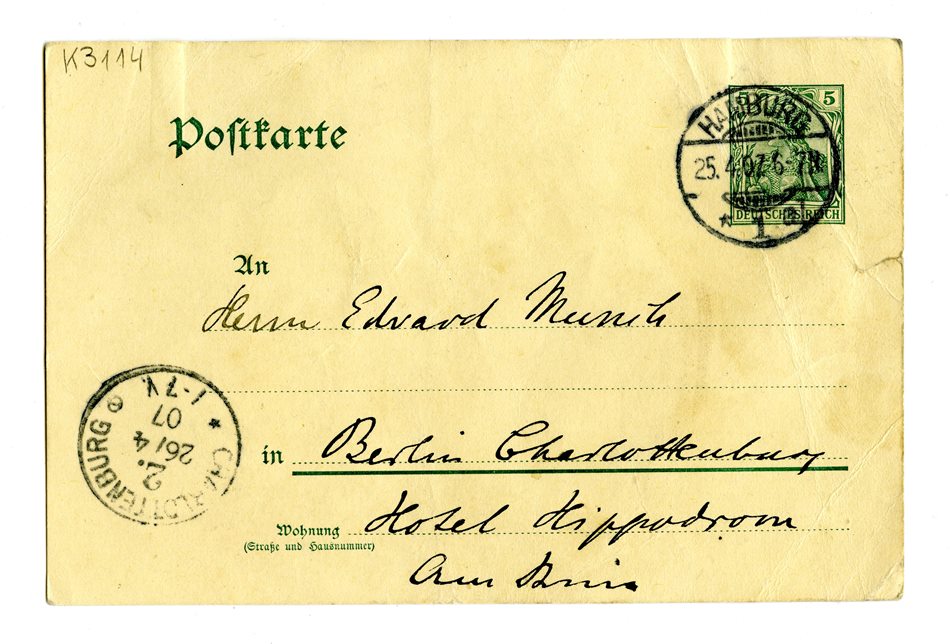 K3114
Postkarte
5 5
HAMBURG
25.4.07. 6-7N.
* 1
DEUTSCHES REICH
An
Herrn Edvard Munch
in Berlin Charlottenburg
Wohnung Hotel Hippodrom
(Straße und Hausnummer)
Am Knie
* CHARLOTTENBURG
2.
26/4
07
1-7V.